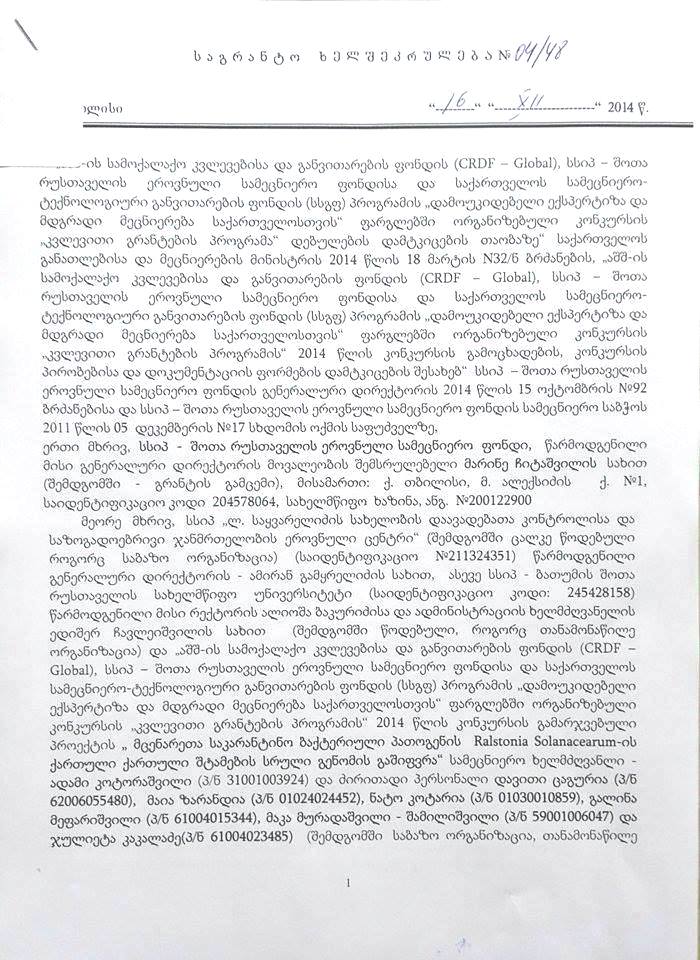 საგრანტო ხელშეკრულება № 04/48
ლისი “ 16 “ “ XII “ 2014 წ.
-ის სამოქალაქო კვლევებისა და განვითარების ფონდის (CRDF – Global), სსიპ – შოთა
რუსთაველის ეროვნული სამეცნიერო ფონდისა და საქართველოს სამეცნიერო-
ტექნოლოგიური განვითარების ფონდის (სსგფ) პროგრამის „დამოუკიდებელი ექსპერტიზა და
მდგრადი მეცნიერება საქართველოსთვის“ ფარგლებში ორგანიზებული კონკურსის
„კვლევითი გრანტების პროგრამა“ დებულების დამტკიცების თაობაზე“ საქართველოს
განათლებისა და მეცნიერების მინისტრის 2014 წლის 18 მარტის N32/ნ ბრძანების, „აშშ-ის
სამოქალაქო კვლევებისა და განვითარების ფონდის (CRDF – Global), სსიპ – შოთა
რუსთაველის ეროვნული სამეცნიერო ფონდისა და საქართველოს სამეცნიერო-
ტექნოლოგიური განვითარების ფონდის (სსგფ) პროგრამის „დამოუკიდებელი ექსპერტიზა და
მდგრადი მეცნიერება საქართველოსთვის“ ფარგლებში ორგანიზებული კონკურსის
„კვლევითი გრანტების პროგრამის“ 2014 წლის კონკურსის გამოცხადების, კონკურსის
პირობებისა და დოკუმენტაციის ფორმების დამტკიცების შესახებ“ სსიპ – შოთა რუსთაველის
ეროვნული სამეცნიერო ფონდის გენერალური დირექტორის 2014 წლის 15 ოქტომბრის №92
ბრძანებისა და სსიპ – შოთა რუსთაველის ეროვნული სამეცნიერო ფონდის სამეცნიერო საბჭოს
2011 წლის 05 დეკემბერის №17 სხდომის ოქმის საფუძველზე,
ერთი მხრივ, სსიპ - შოთა რუსთაველის ეროვნული სამეცნიერო ფონდი, წარმოდგენილი
მისი გენერალური დირექტორის მოვალეობის შემსრულებელი მარინე ჩიტაშვილის სახით
(შემდგომში - გრანტის გამცემი), მისამართი: ქ. თბილისი, მ. ალექსიძის ქ. №1,
საიდენტიფიკაციო კოდი 204578064, სახელმწიფო ხაზინა, ანგ. №200122900
მეორე მხრივ, სსიპ „ლ. საყვარელიძის სახელობის დაავადებათა კონტროლისა და
საზოგადოებრივი ჯანმრთელობის ეროვნული ცენტრი“ (შემდგომში ცალკე წოდებული
როგორც საბაზო ორგანიზაცია) (საიდენტიფიკაციო №211324351) წარმოდგენილი
გენერალური დირექტორის - ამირან გამყრელიძის სახით, ასევე სსიპ - ბათუმის შოთა
რუსთაველის სახელმწიფო უნივერსიტეტი (საიდენტიფიკაციო კოდი: 245428158)
წარმოდგენილი მისი რექტორის ალიოშა ბაკურიძისა და ადმინისტრაციის ხელმძღვანელის
ედიშერ ჩავლეიშვილის სახით (შემდგომში წოდებული, როგორც თანამონაწილე
ორგანიზაცია) და „აშშ-ის სამოქალაქო კვლევებისა და განვითარების ფონდის (CRDF –
Global), სსიპ – შოთა რუსთაველის ეროვნული სამეცნიერო ფონდისა და საქართველოს
სამეცნიერო-ტექნოლოგიური განვითარების ფონდის (სსგფ) პროგრამის „დამოუკიდებელი
ექსპერტიზა და მდგრადი მეცნიერება საქართველოსთვის“ ფარგლებში ორგანიზებული
კონკურსის „კვლევითი გრანტების პროგრამის“ 2014 წლის კონკურსის გამარჯვებული
პროექტის „ მცენარეთა საკარანტინო ბაქტერიული პათოგენის Ralstonia Solanacearum-ის
ქართული ქართული შტამების სრული გენომის გაშიფვრა“ სამეცნიერო ხელმძღვანლი -
ადამი კოტორაშვილი (პ/ნ 31001003924) და ძირითადი პერსონალი დავითი ცაგურია (პ/ნ
62006055480), მაია ზარანდია (პ/ნ 01024024452), ნატო კოტარია (პ/ნ 01030010859), გალინა
მეფარიშვილი (პ/ნ 61004015344), მაკა მურადაშვილი - შამილიშვილი (პ/ნ 59001006047) და
ჯულიეტა კაკალაძე(პ/ნ 61004023485) (შემდგომში საბაზო ორგანიზაცია, თანამონაწილე
1